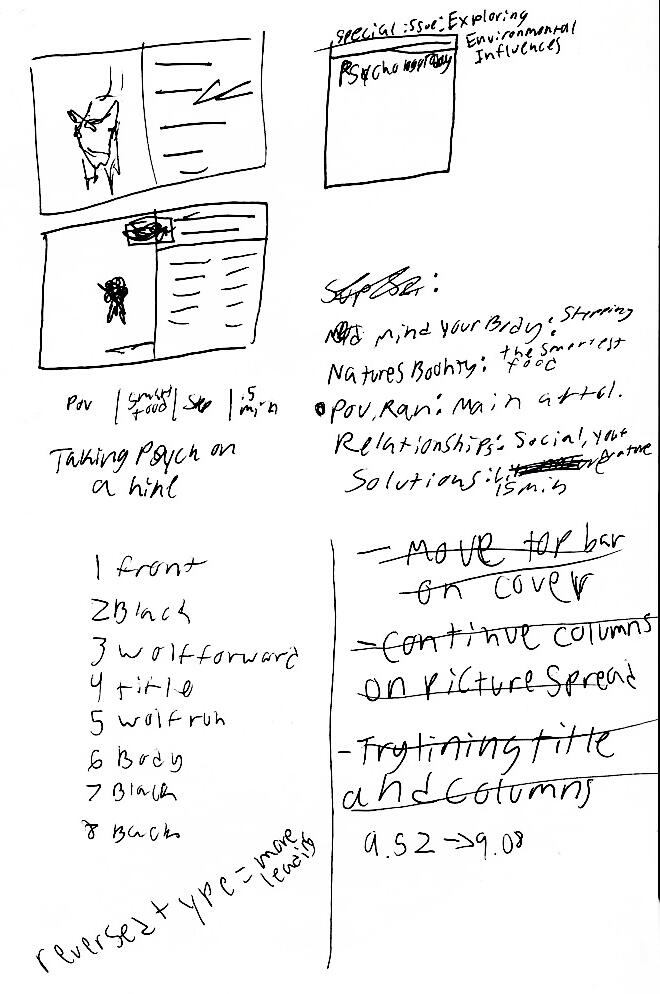 special issue: Exploring
Environmental
Influences
Psychology
mind your Body: Stepping
Natures Bounty: the smartest
food
Pov, Ran: main
Relationships: Social, your
nature
Solutions:
15 min
Pov | smart food | | .5 min
Taking Psych on
a hike
1 front
2 Black
3 wolf forward
4 title
5 wolf run
6 Body
7 Black
8 Back
reversed type = more
leading
- Move top bar
on cover
- Continue columns
on picture spread
- Try lining title
and columns
9.52 → 9.08